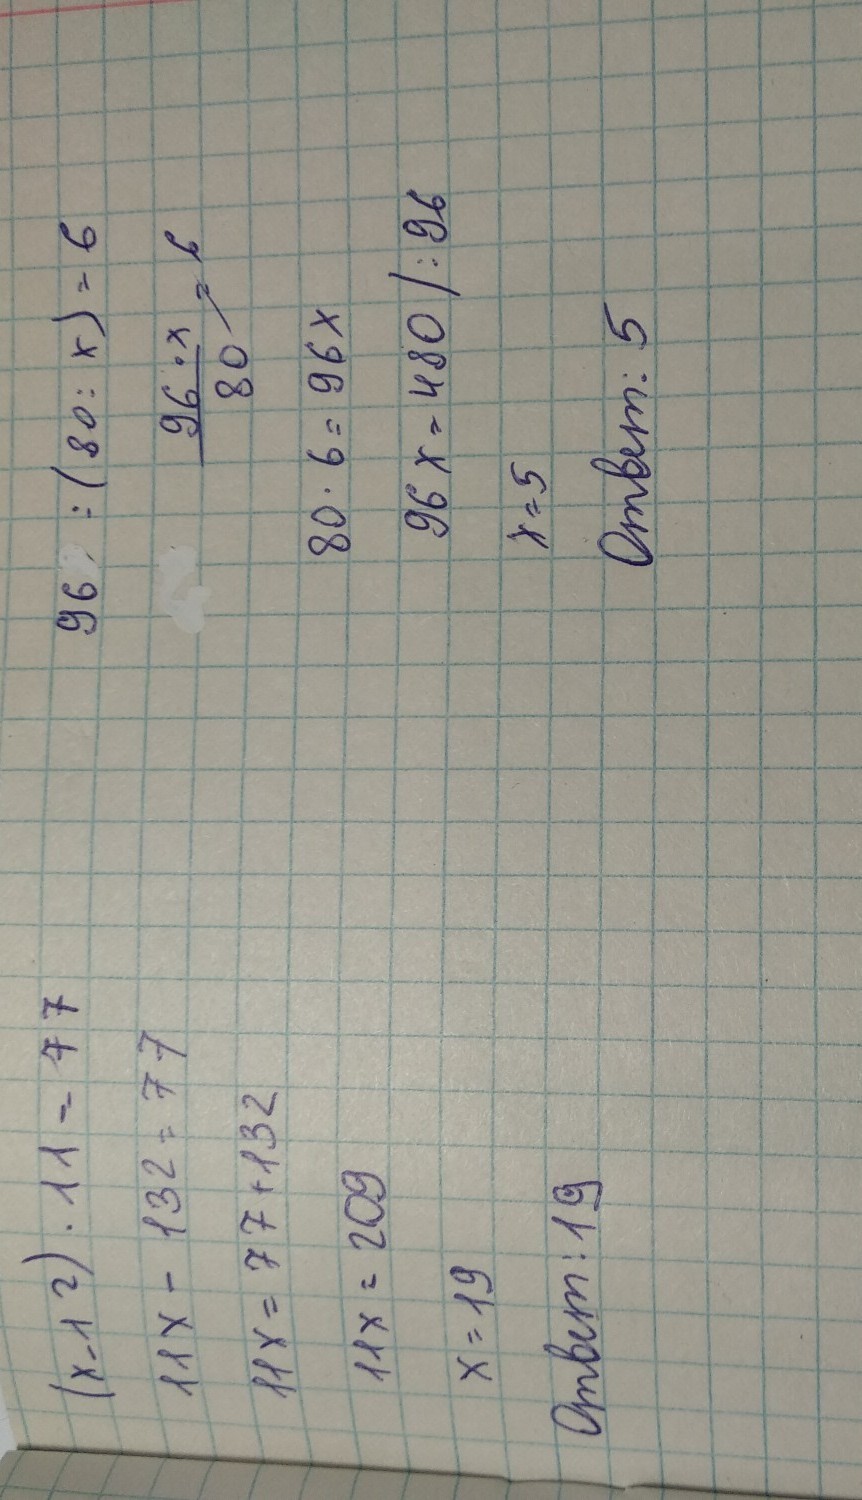 (x-12)·11=77
11x-132=77
11x=77+132
11x=209
x=19
Ответ: 19
96:(80:x)=6
96·x
80
=6
80·6=96x
96x=480/:96
x=5
Ответ: 5